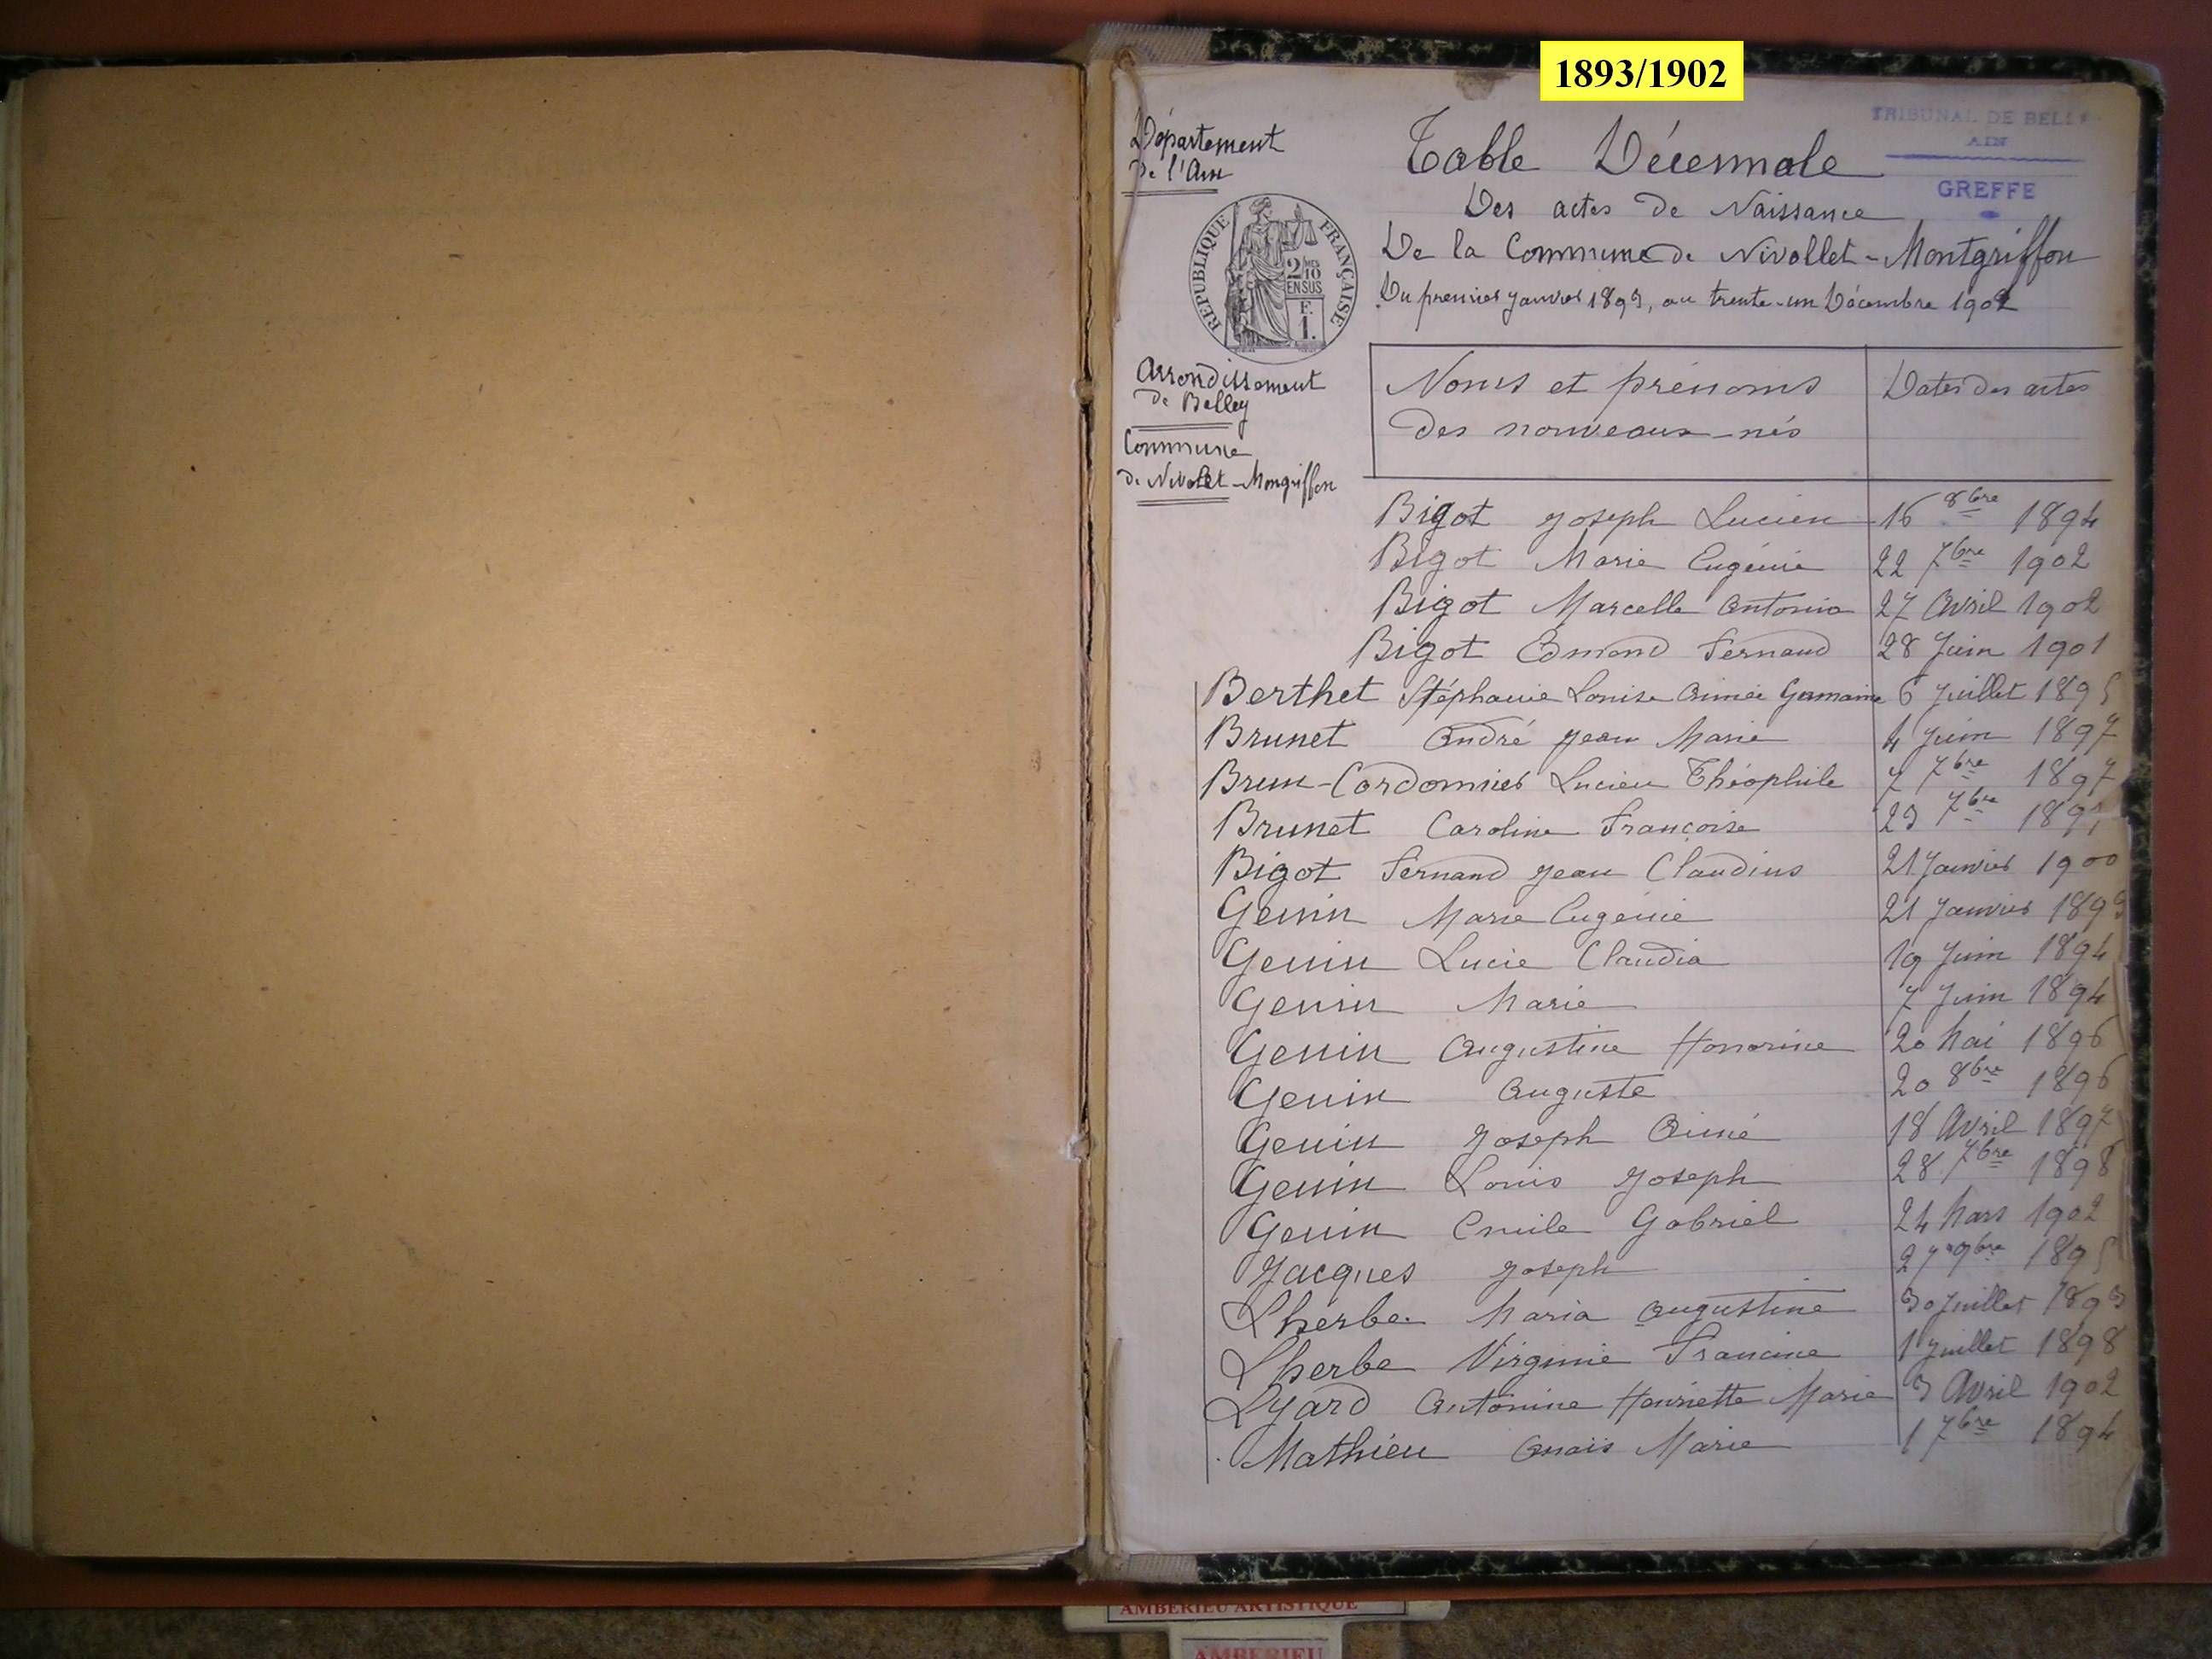 1893/1902
TRIBUNAL DE BELLEY
AIN
GREFFE
Département
de l'Ain
REPUBLIQUE FRANÇAISE
2/10
EN SUS
F.
1.
Arrondissement
de Belley
Commune
de Nivollet-Mongriffon
Table Décennale
Des actes de Naissance
De la Commune de Nivollet-Montgriffon
Du premier Janvier 1893, au trente-un Décembre 1902
Noms et prénoms Dates des actes
des nouveaux-nés
Bigot Joseph Lucien 16 8bre 1894
Bigot Marie Eugénie 22 7bre 1902
Bigot Marcelle Antonia 27 Avril 1902
Bigot Edmond Fernand 28 Juin 1901
Berthet Stéphanie Louise Aimée Germaine 6 Juillet 1895
Brunet André Jean Marie 4 Juin 1897
Brun-Cordonnier Lucien Théophile 7 7bre 1897
Brunet Caroline Françoise 23 7bre
Bigot Fernand Jean Claudius 21 Janvier 1900
Genin Marie Eugénie 21 Janvier 1893
Genin Lucie Claudia 19 Juin 1894
Genin Marie 7 Juin 1894
Genin Augustine Honorine 20 Mai 1896
Genin Auguste 20 8bre 1896
Genin Joseph Aimé 18 Avril 1897
Genin Louis Joseph 28 7bre 1898
Genin Emile Gabriel 24 Mars 1902
Jacques Joseph 27 9bre 1895
Lherbe Maria Augustine 30 Juillet 1893
Lherbe Virginie Francine 1 Juillet 1898
Lyard Antonine Henriette Marie 3 Avril 1902
Mathieu Anaïs Marie 1 7bre 1894
AMBERIEU ARTISTIQUE
AMBERIEU